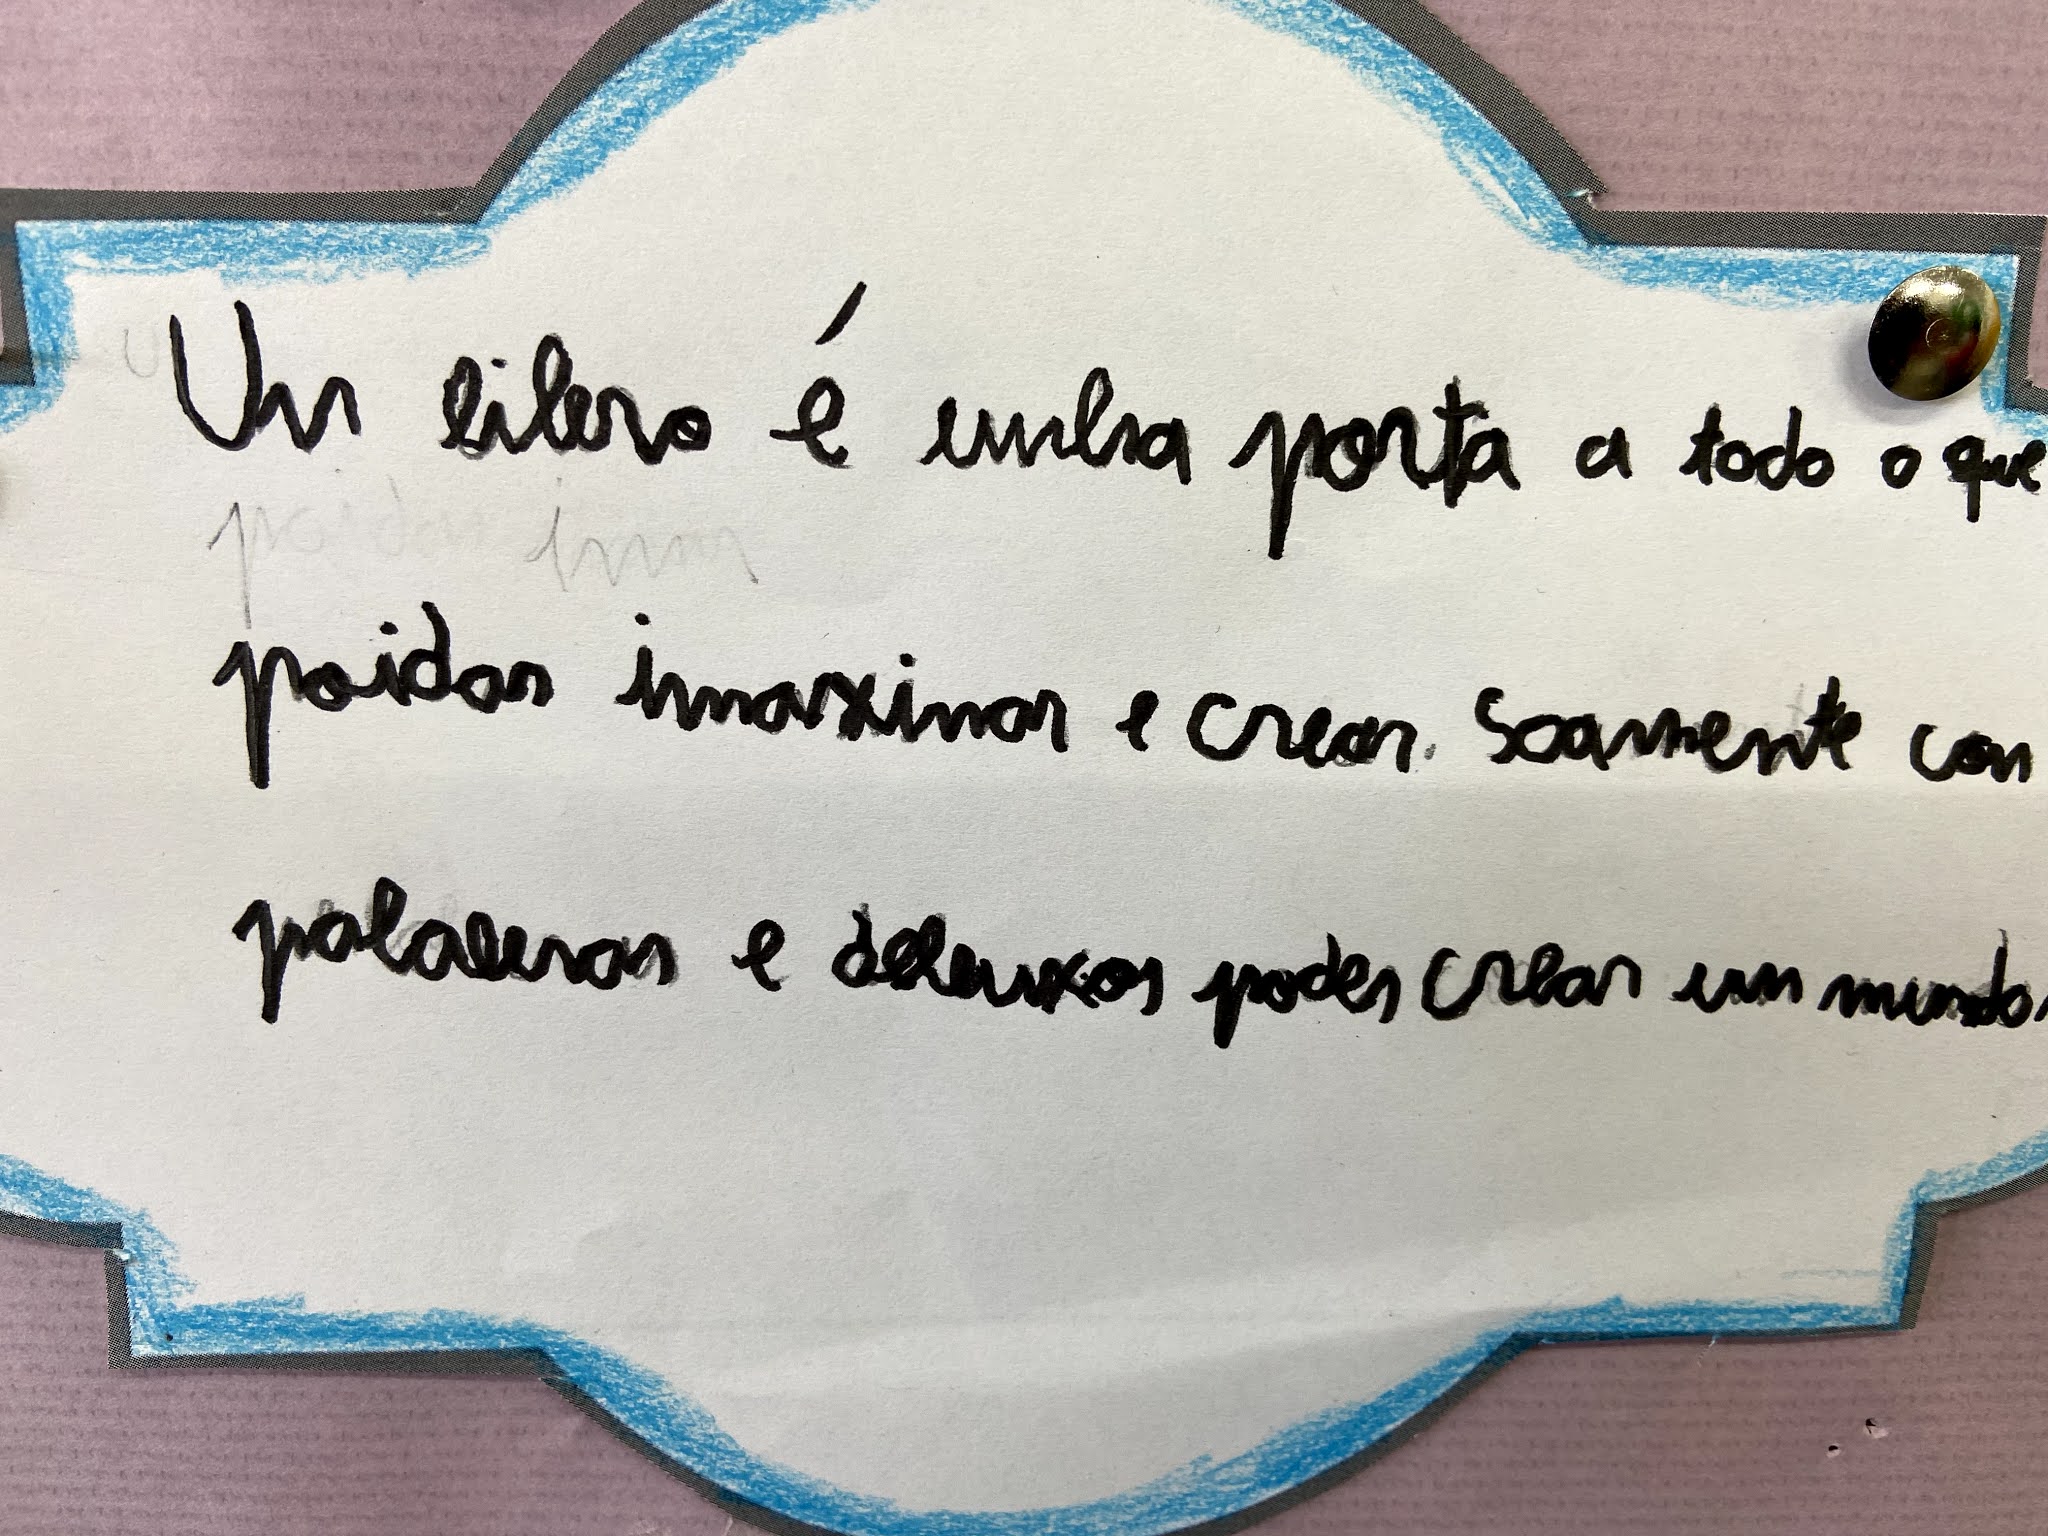 Un libro é unha porta a todo o que
poidas imaxinar e crear. Soamente con
palabras e debuxos podes crear un mundo.